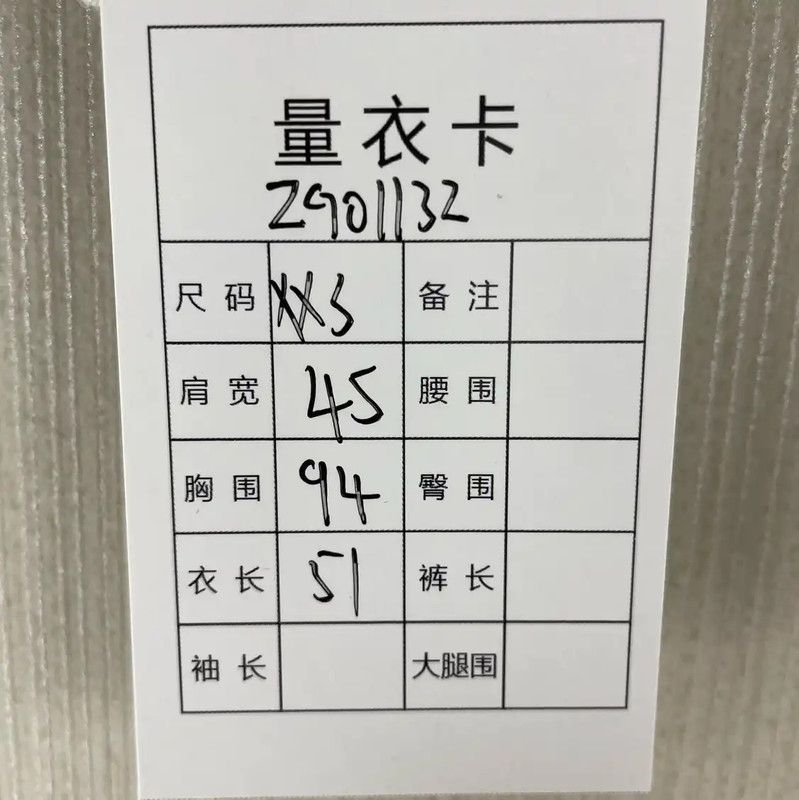 量衣卡
2901132
尺码 XXS 备注
肩宽 45 腰围
胸围 94 臀围
衣长 51 裤长
袖长 大腿围